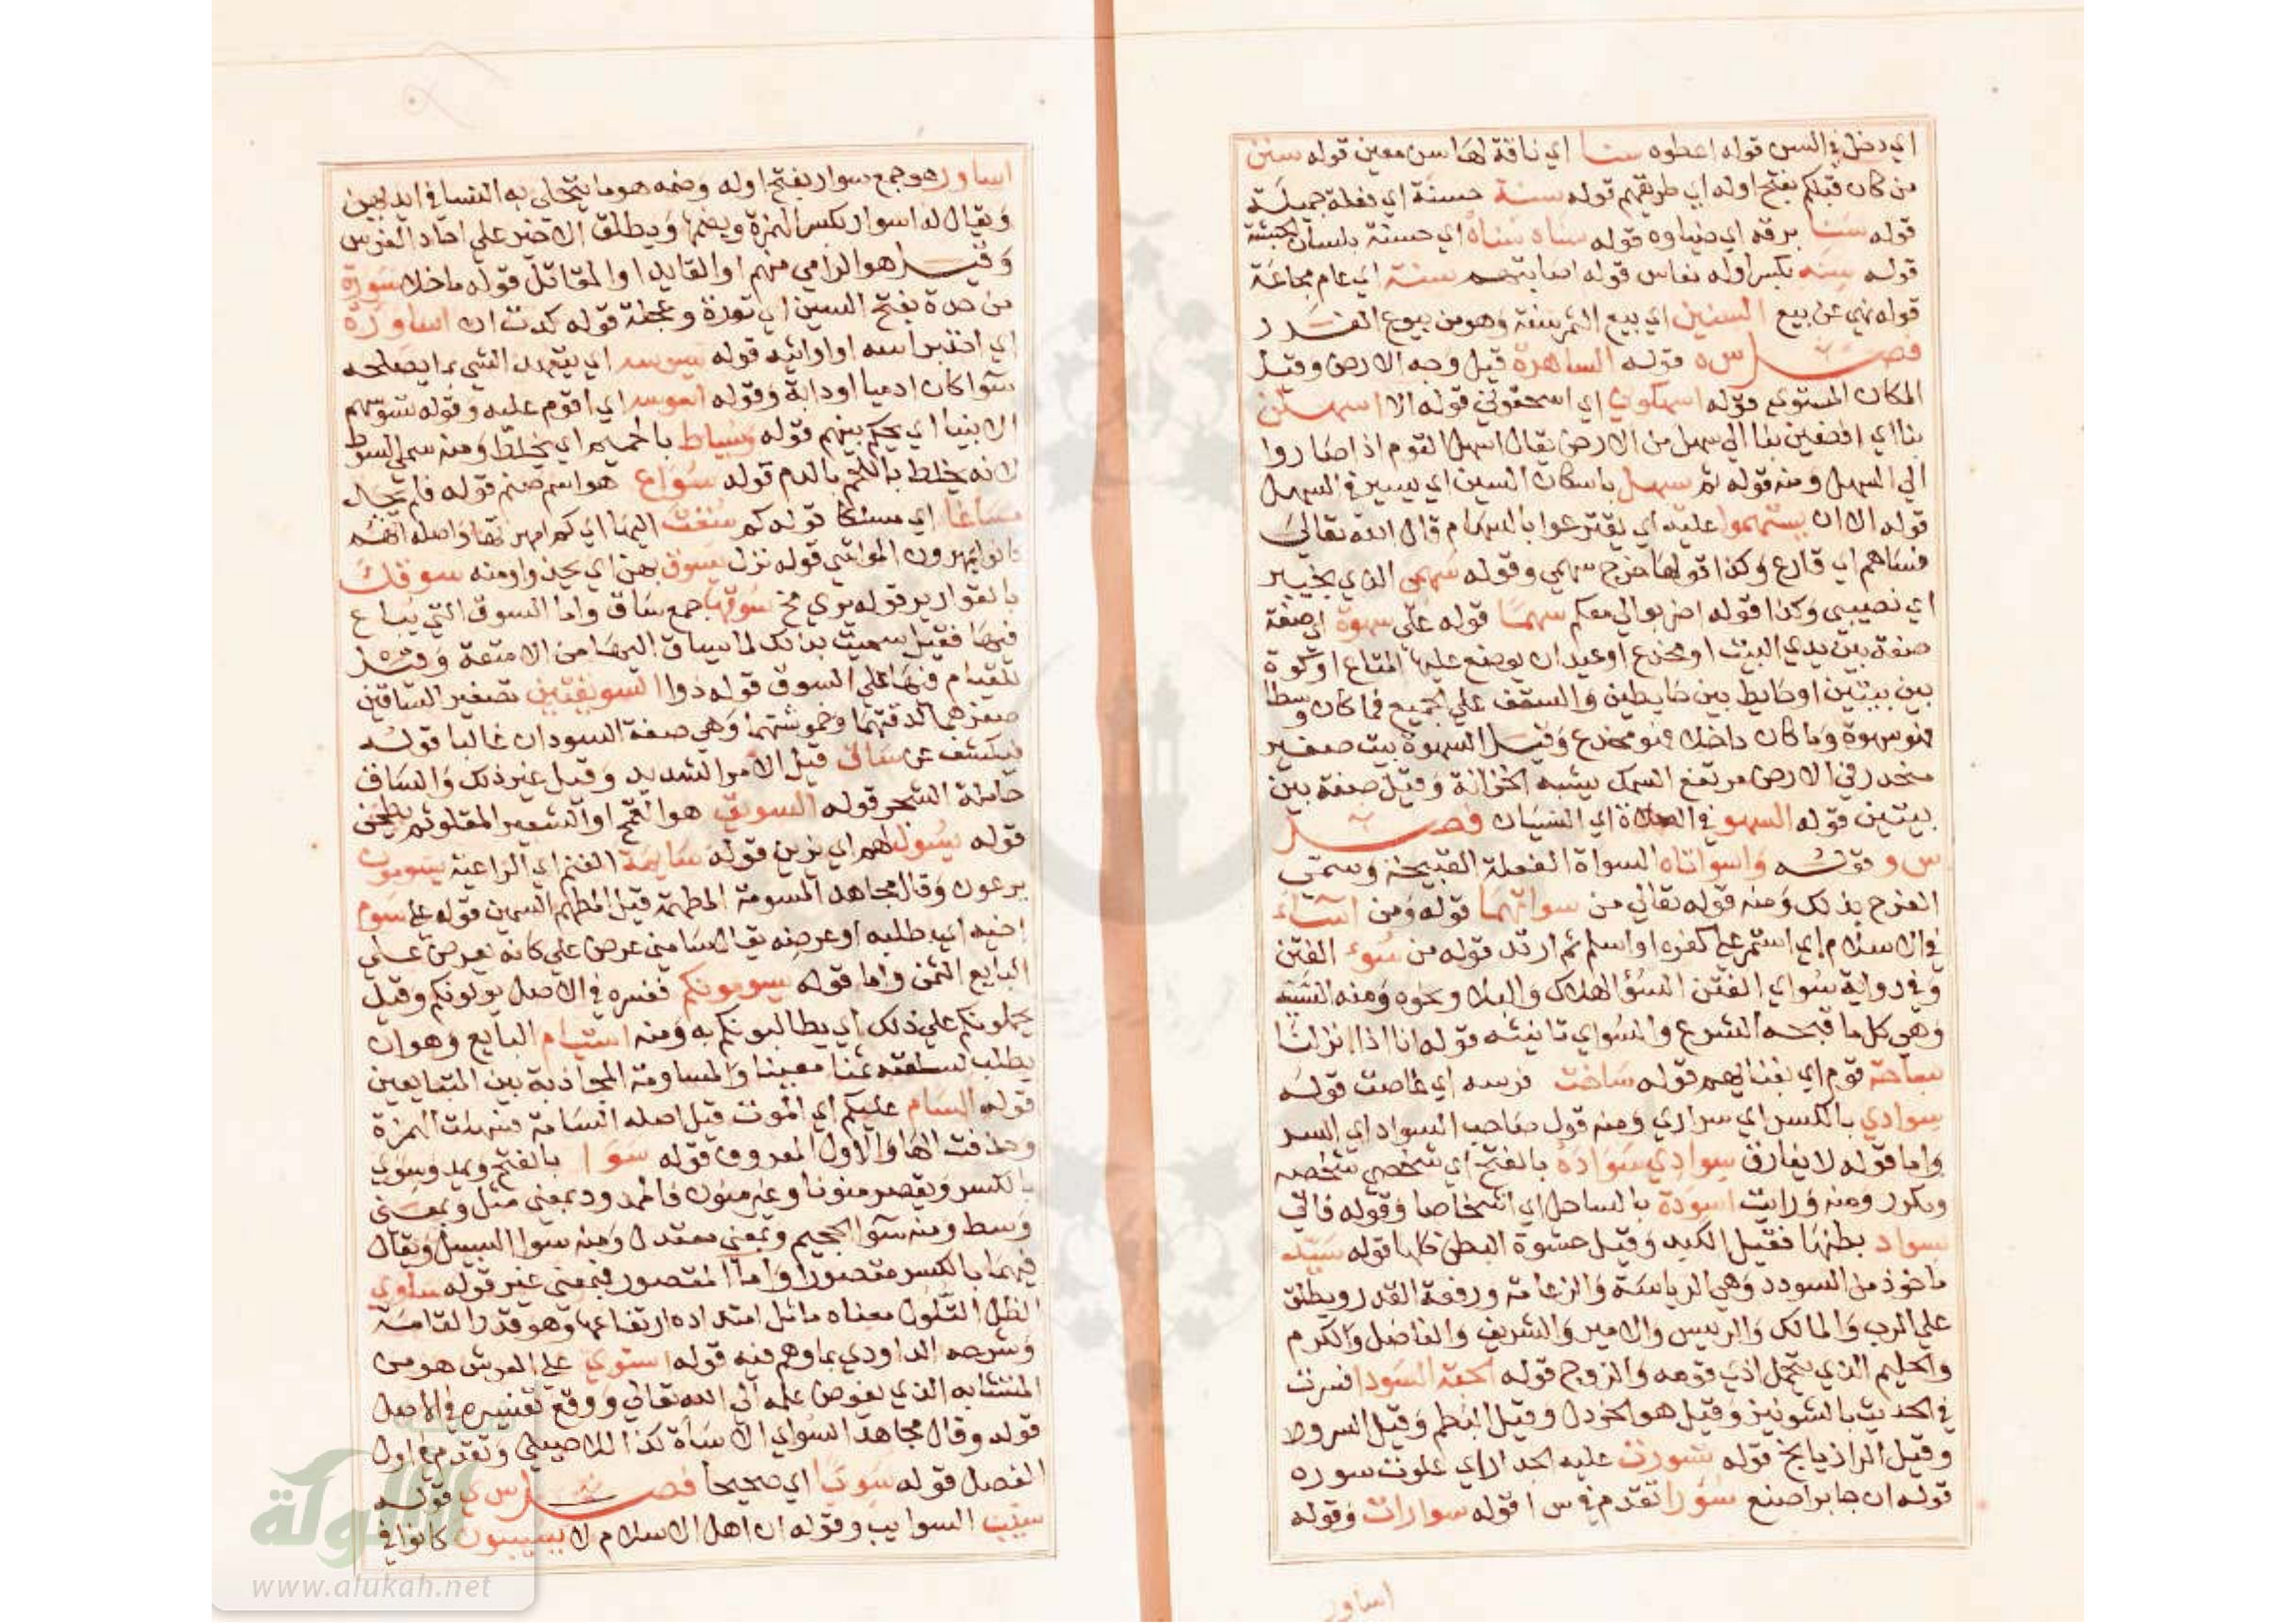 اي دخل في السن قوله اعطوه سنا اي ناقة لها سن معين قوله سنن
من كان قبلكم بفتح اوله اي طريقهم قوله سنة حسنة اي فعلة جميلة
قوله سنا برقه اي ضياوه قوله سناه سناه اي حسنة بلسان الحبشة
قوله سنه بكسر اوله نعاس قوله اصابتهم سنة اي عام مجاعة
قوله نهي عن بيع السنين اي بيع الثمر سنة وهو من بيوع الغرر
فصل س ه قوله الساهرة قيل وجه الارض وقيل
المكان المستوي قوله اسهكوني اي اسحقوني قوله الا اسهلن
بنا اي افضين بنا الي سهل من الارض يقال اسهل القوم اذا صاروا
الي السهل ومنه قوله ثم سهل باسكان السين اي يسير في السهل
قوله الا ان يستهموا عليه اي يقترعوا بالسهام قال الله تعالي
فساهم اي قارع وكذا قولها خرج سهمي وقوله سهمي الذي بخيبر
اي نصيبي وكذا قوله اضربوا لي معكم سهما قوله علي سهوة اي صفة
صفة بين يدي البيت او مخدع او عيدان يوضع عليها المتاع او كوة
بين بيتين او حايط بين حايطين والسقف علي الجميع فما كان وسطا
فهو سهوة وما كان داخلا فهو مخدع وقيل السهوة بيت صغير
منحدر في الارض مرتفع السمك يشبه الخزانة وقيل صفة بين
بيتين قوله السهو في الصلاة اي النسيان فصل
س و قوله واسواتاه السواة الفعلة القبيحة وسمي
الفرج بذلك ومنه قوله تعالي من سواتهما قوله ومن اساء
في الاسلام اي استمر علي كفره او اسلم ثم ارتد قوله من سوء الفتن
وفي رواية سواي الفتن السوء الهلاك والبلا ونحوه ومنه السيية
وهي كل ما قبحه الشرع والسواي تانيثه قوله انا اذا نزلنا
بساحة قوم اي بفنايهم قوله ساخت فرسه اي غاصت قوله
سوادي بالكسر اي سراري ومنه قول صاحب السواد اي السر
واما قوله لا يفارق سوادي سواده بالفتح اي شخصي شخصه
وتكرر ومنه ورايت اسودة بالساحل اي اشخاصا وقوله فاتي
بسواد بطنها فقيل الكبد وقيل حشوة البطن كلها قوله سيد
ماخوذ من السودد وهي الرياسة والزعامة ورفعة القدر ويطلق
علي الرب والمالك والرييس والامير والشريف والفاضل والكرم
والحليم الذي يتحمل اذي قومه والزوج قوله الحبة السودا فسرت
في الحديث بالشونيز وقيل هو الخردل وقيل البطم وقيل السروط
وقيل الرازيانج قوله تسورت عليه الجدار اي علوت سوره
قوله ان جابرا صنع سورا تقدم في س ا قوله سوارات وقوله
اساور
اساور هو جمع سوار بفتح اوله وضمه هو ما يتحلي به النسا في ايديهن
ويقال له اسوار بكسر الهمزة وبضمها ويطلق الاخير علي احاد الفرس
وقيل هو الرامي منهم او القايد او المقاتل قوله ما خلا سورة
من حدة بفتح السين اي ثورة وعجلة قوله كدت ان اساوره
اي اخذ براسه او اواثبه قوله يسوس اي يتعهد الشي بما يصلحه
سوا كان ادميا او دابة وقوله اسوس اي اقوم عليه وقوله تسوسهم
الانبيا اي يحكم بينهم قوله يساط بالحميم اي يخلط ومنه سمي السوط
لانه يخلط اللحم بالدم قوله سواع هو اسم صنم قوله فلم يجد
مساغا اي مسلكا قوله كم سقت اليها اي كم امهرتها واصله انهم
كانوا يمهرون المواشي قوله نزل يسوق بهن اي يحدو ومنه سوقك
بالقوارير قوله يري مخ سوقها جمع ساق واما السوق التي يباع
فيها فقيل سميت بذلك لما يساق اليها من الامتعة وقيل
للقيام فيها علي السوق قوله ذوا السويقتين تصغير الساقين
صغرهما لدقتهما وخموشتهما وهي صفة السودان غالبا قوله
فيكشف عن ساق قيل الامر الشديد وقيل غير ذلك والساق
حاملة الشجر قوله السويق هو القمح او الشعير المقلو ثم يطحن
قوله سول لهم اي زين قوله سايمة الغنم اي الراعية يسومون
يرعون وقال مجاهد المسومة المطهمة قيل المطهم السمين قوله علي سوم
اخيه اي طلبه او عرضه يقال سامني عرض علي كانه يعرض علي
البايع الثمن واما قوله يسومونكم ففسره في الاصل يولونكم وقيل
يحملونكم علي ذلك اي يطالبونكم به ومنه استيام البايع وهو ان
يطلب لسلعته ثمنا معينا والمساومة المجاذبة بين المتبايعين
قوله السام عليكم اي الموت قيل اصله السامة فسهلت الهمزة
وحذفت الها والاول المعروف قوله سوا بالفتح ويمد وسوي
بالكسر ويقصر منونا وغير منون فالممدود بمعني مثل وبمعني
وسط ومنه سوا الجحيم وبمعني معتدل ومنه سوا السبيل ويقال
فيهما بالكسر مقصورا واما المقصور فبمعني غير قوله ساوي
الظل التلول معناه ماثل امتداده ارتفاعها وهو قدر القامة
وشرحه الداودي بما وهم فيه قوله استوي علي العرش هو من
المتشابه الذي يفوض علمه الي الله تعالي ووقع تفسيره في الاصل
قوله وقال مجاهد السواي الاساة كذا للاصيلي وتقدم في اول
الفصل قوله سويا اي صحيحا فصل س ي قوله
سيب السوايب وقوله ان اهل الاسلام لا يسيبون كانوا في
الألوكة
www.alukah.net